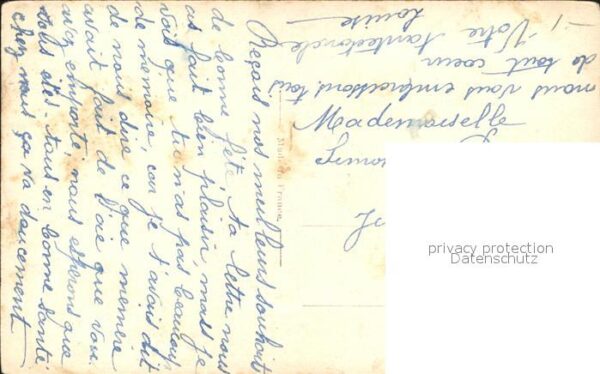 Reçois nos meilleurs souhait
de bonne fête ta lettre nous
as fait bien plaisir mais je
vois que tu n'as pas beaucoup
de memoire, car je t'avais dit
de nous dire ce que memère
avait fait de l'oie que vous
a'vez emporté. nous espérons que
vous êtes tous en bonne santé
chez nous ça va doucement
nous vous embrassons tous
de tout coeur
Votre
Louise
Mademoiselle
Made in France
privacy protection
Datenschutz